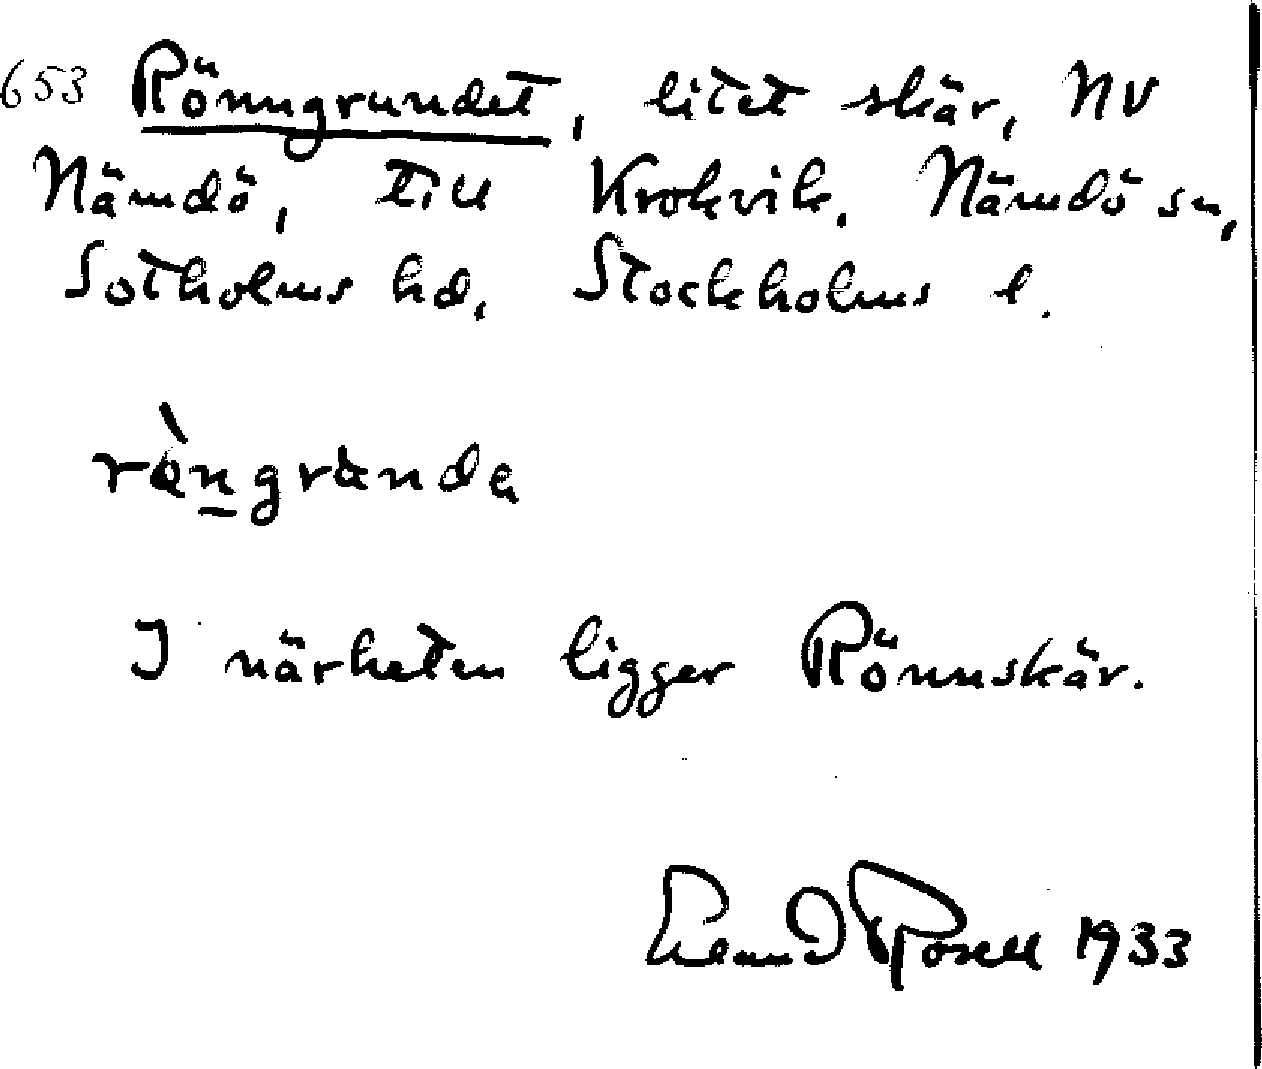 653 Rönngrundet, litet skär, NV
Nämdö, till Krokvik. Nämdö sn,
Sotholms hd, Stockholms l.
rò̀n̲grunda
I närheten ligger Rönnskär.
Erland Rosell 1933